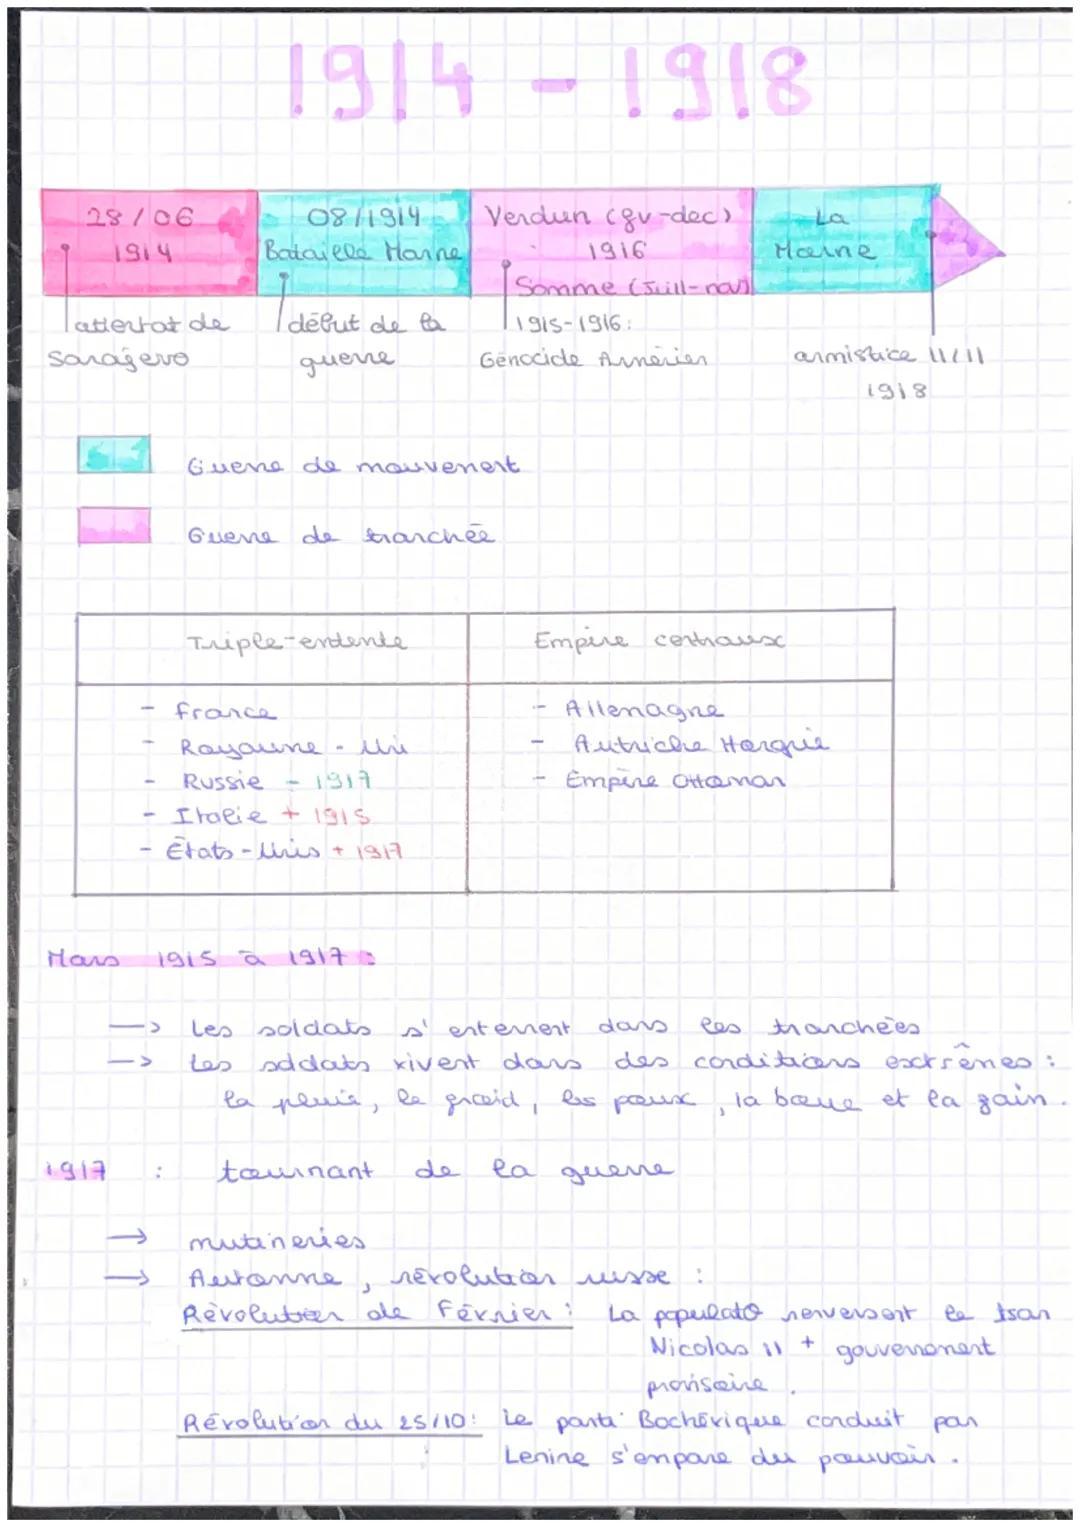 1914 - 1918
28/06
1914
08/1914
Bataille Marne
Verdun (fev-dec)
1916
Somme (Juill-nov)
La
Marne
attentat de
Sarajevo
début de la
guerre
1915-1916:
Génocide Arménien
armistice 11/11
1918
Guerre de mouvement
Guerre de tranchée
Triple-entente
Empire centraux
- France
- Royaume-Uni
- Russie - 1917
- Italie + 1915
- États-Unis + 1917
- Allemagne
- Autriche Hongrie
- Empire Ottoman
Mars 1915 à 1917 :
-> Les soldats s'enterrent dans les tranchées
-> Les soldats vivent dans des conditions extrêmes :
la pluie, le froid, les poux, la boue et la faim.
1917 : tournant de la guerre
-> mutineries
-> Automne, révolution russe :
Révolution de Février : La populato renversent le tsar
Nicolas II + gouvernement
provisoire.
Révolution du 25/10: Le parti Bochévique conduit par
Lenine s'empare du pouvoir.